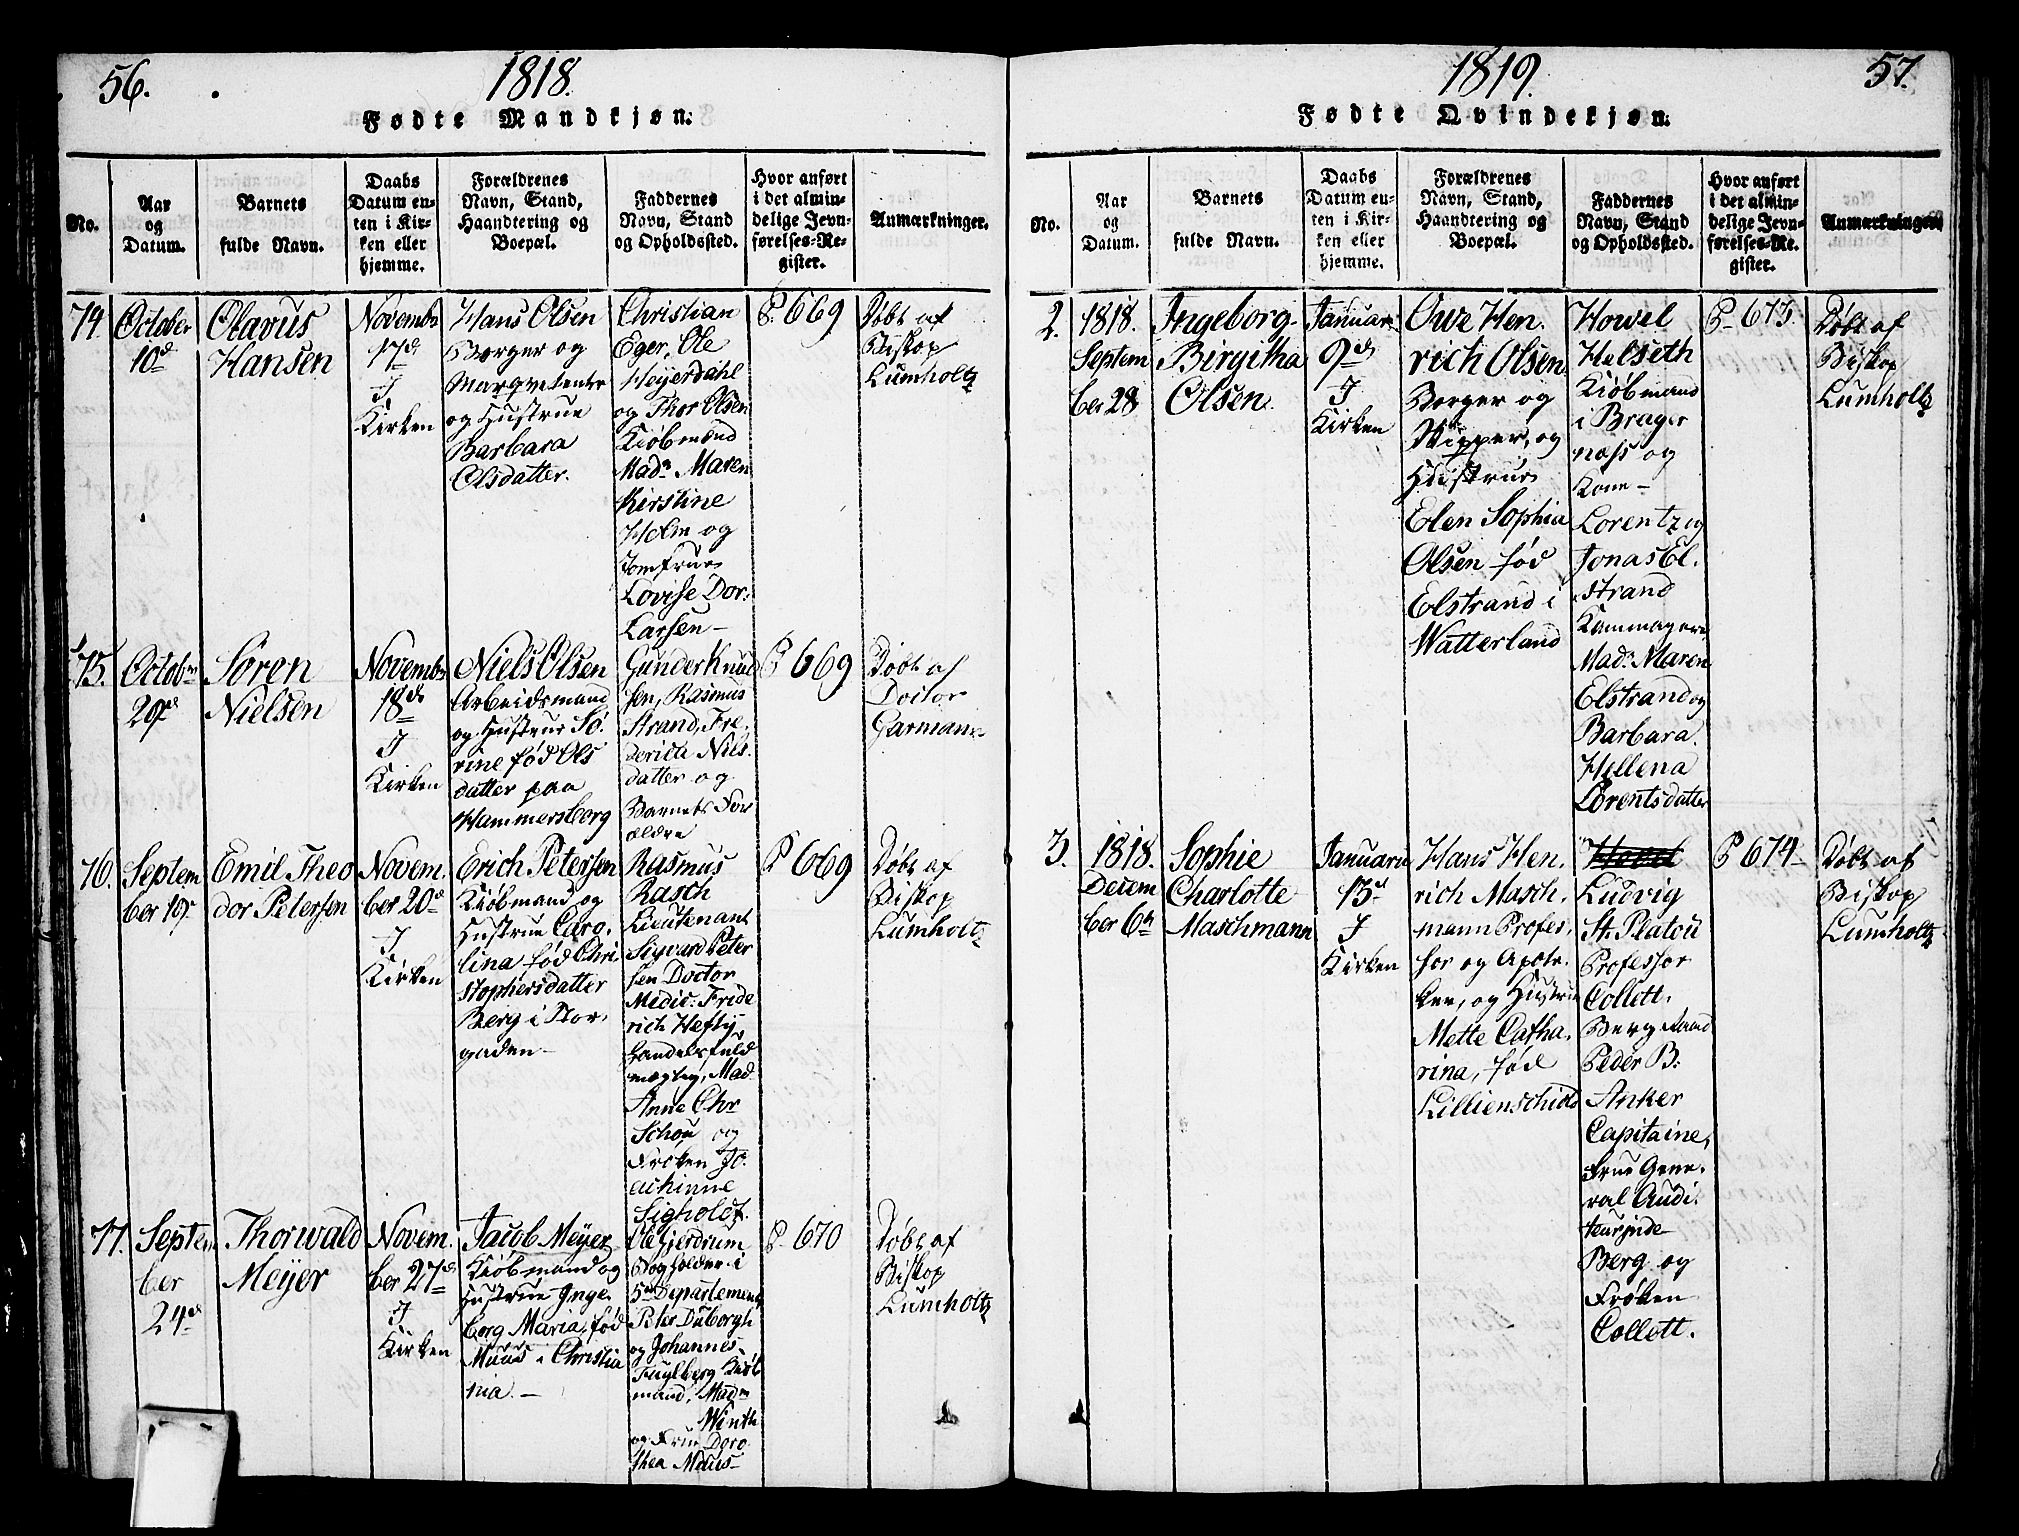 56.
1818.
Fødte Mandkjøn.
No.
Aar
og
Datum.
Barnets
fulde Navn.
Daabs
Datum en-
ten i Kir-
ken eller
hjemme.
Forældrenes
Navn, Stand,
Haandtering og
Boepæl.
Faddernes
Navn, Stand
og Opholdssted.
Hvor anført
i det almin-
delige Jevn-
førelses-Re-
gister.
Anmærkninger.
74.
October
10d
Olavus
Hansen
Novembr
17d
I
Kirken
Hans Olsen
Borger og
Marqvetenter
og Hustrue
Barbara
Olsdatter.
Christian
Eger, Ole
Heyerdahl
og Thor Olsen
Kiøbmænd
Madm Maren
Kirstine
Holm og
Jomfrue
Lovise Dor.
Larsen
P. 669
Døbt af
Biskop
Lumholtz
75.
Octobr
29d
Søren
Nielsen
Novembr
18d
I
Kirken
Niels Olsen
Arbeidsmand
og Hustrue Sø-
rine fød Ols
datter paa
Hammersborg
Gunder Knud
sen, Rasmus
Strand, Fre-
derica Niels
datter og
Barnets For
ældre
P 669
Døbt af
Doctor
Garmann
76.
Septem
ber 19d
Emil Theo
dor Petersen
Novem.
ber 20d
I
Kirken
Erich Petersen
Kiøbmand og
Hustrue Caro-
lina fød Chri
stophersdatter
Berg i Stor-
gaden
Rasmus
Rasch
Lieutenant
Sigvard Peter
sen Doctor
Medic: Fride
rich Hefty
Handelsfuld
mægtig, Mad
Anne Chr
Schou og
Frøken Jo-
achinne
Sigholdt.
P 669
Døbt af
Biskop
Lumholtz
77.
Septem
ber
24d
Thorwald
Meyer
Novem.
ber 27d
I
Kirken
Jacob Meyer
Kiøbmand og
Hustrue Inge-
borg Maria, fød
Muus i Christia
nia.
Ole Gjerdrum
Bogholder i
5te Departement
Peter Duborgh
og Johannes
Fuglberg Kiøb
mand, Madm
Winth
og Frue Doro
thea Muus
P. 670
Døbt af
Biskop
Lumholtz
1819.
57.
Fødte Qvindekjøn.
No.
Aar
og
Datum.
Barnets
fulde Navn.
Daabs
Datum en-
ten i Kir-
ken eller
hjemme.
Forældrenes
Navn, Stand,
Haandtering og
Boepæl.
Faddernes
Navn, Stand
og Opholdssted.
Hvor anført
i det almin-
delige Jevn-
førelses-Re-
gister.
Anmærkninger.
2.
1818.
Septem
ber 28
Ingeborg
Birgitha
Olsen.
Januari
9d
I
Kirken
Owe Hen.
rich Olsen
Borger og
Skipper, og
Hustrue
Elen Sophia
Olsen fød
Elstrand i
Watterland
Howel
Helseth
Kiøbmand
i Brager
næss og
Kone
Lorentz og
Jonas El.
strand
Kammagere
Madm Maren
Elstrand og
Barbara
Hellena
Lorentsdatter
P. 673.
Døbt af
Biskop
Lumholtz
3.
1818.
Decem
ber 6te
Sophie
Charlotte
Maschmann
Januarii
13d
I
Kirken
Hans Hen.
rich Masch.
mann Profes-
sor og Apote-
ker, og Hustrue
Mette Catha.
rina, fød
Lillienschiold
Ludvig
St. Platou
Professor
Collett.
Bergraad
Peder B:
Anker
Capitaine,
Frue Gene-
ral Audi-
teurinde
Berg og
Frøken
Collett.
P 674
Døbt af
Biskop
Lumholtz